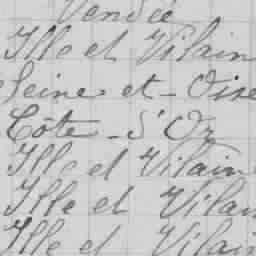 Vendée
Ille et Vilain
Seine et - Oise
Côte - d'Or
Ille et Vilain
Ille et Vilain
Ille et Vilain